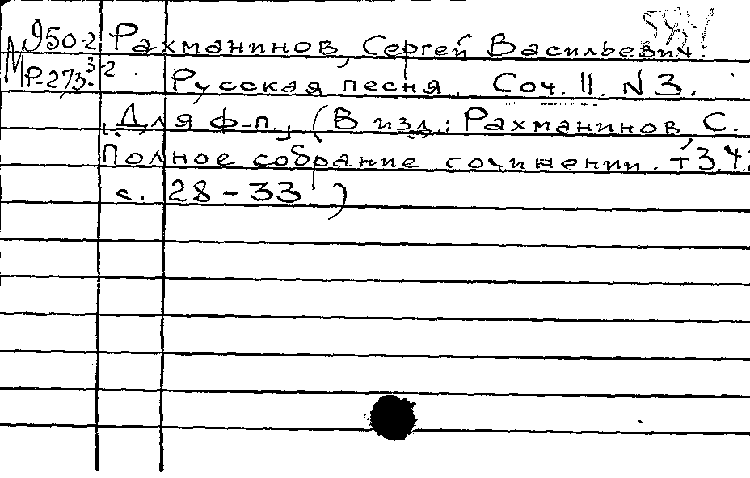 950-2 Рахманинов, Сергей Васильевич.
М Р-273 3-2 Русская песня. Соч. 11. N 3.
Для ф-п. (В изд.: Рахманинов, С.
Полное собрание сочинении. т 3.
с. 28-33)